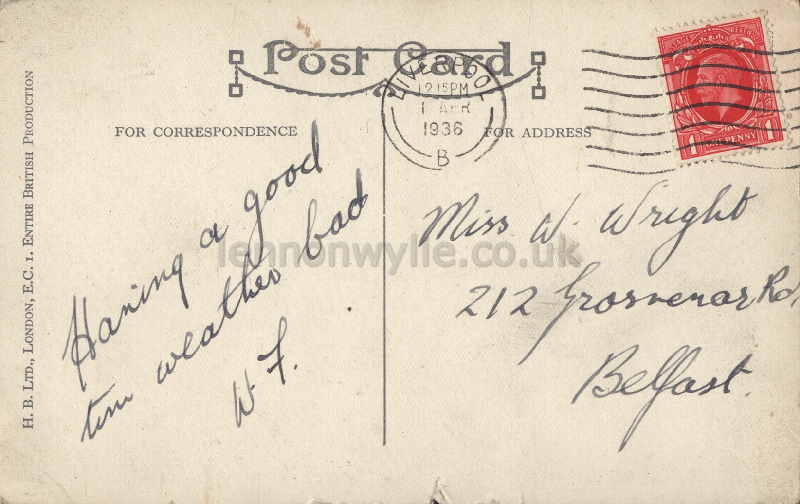 Post Card
LIVERPOOL
12 15 PM
1 APR
1936
B
POSTAGE REVENUE
1 ONE PENNY 1
FOR CORRESPONDENCE
FOR ADDRESS
H. B. LTD., LONDON, E.C. 1. ENTIRE BRITISH PRODUCTION
Having a good
time weather bad
W F.
Miss W. Wright
212 Grosvenor Rd,
Belfast.
lennonwylie.co.uk